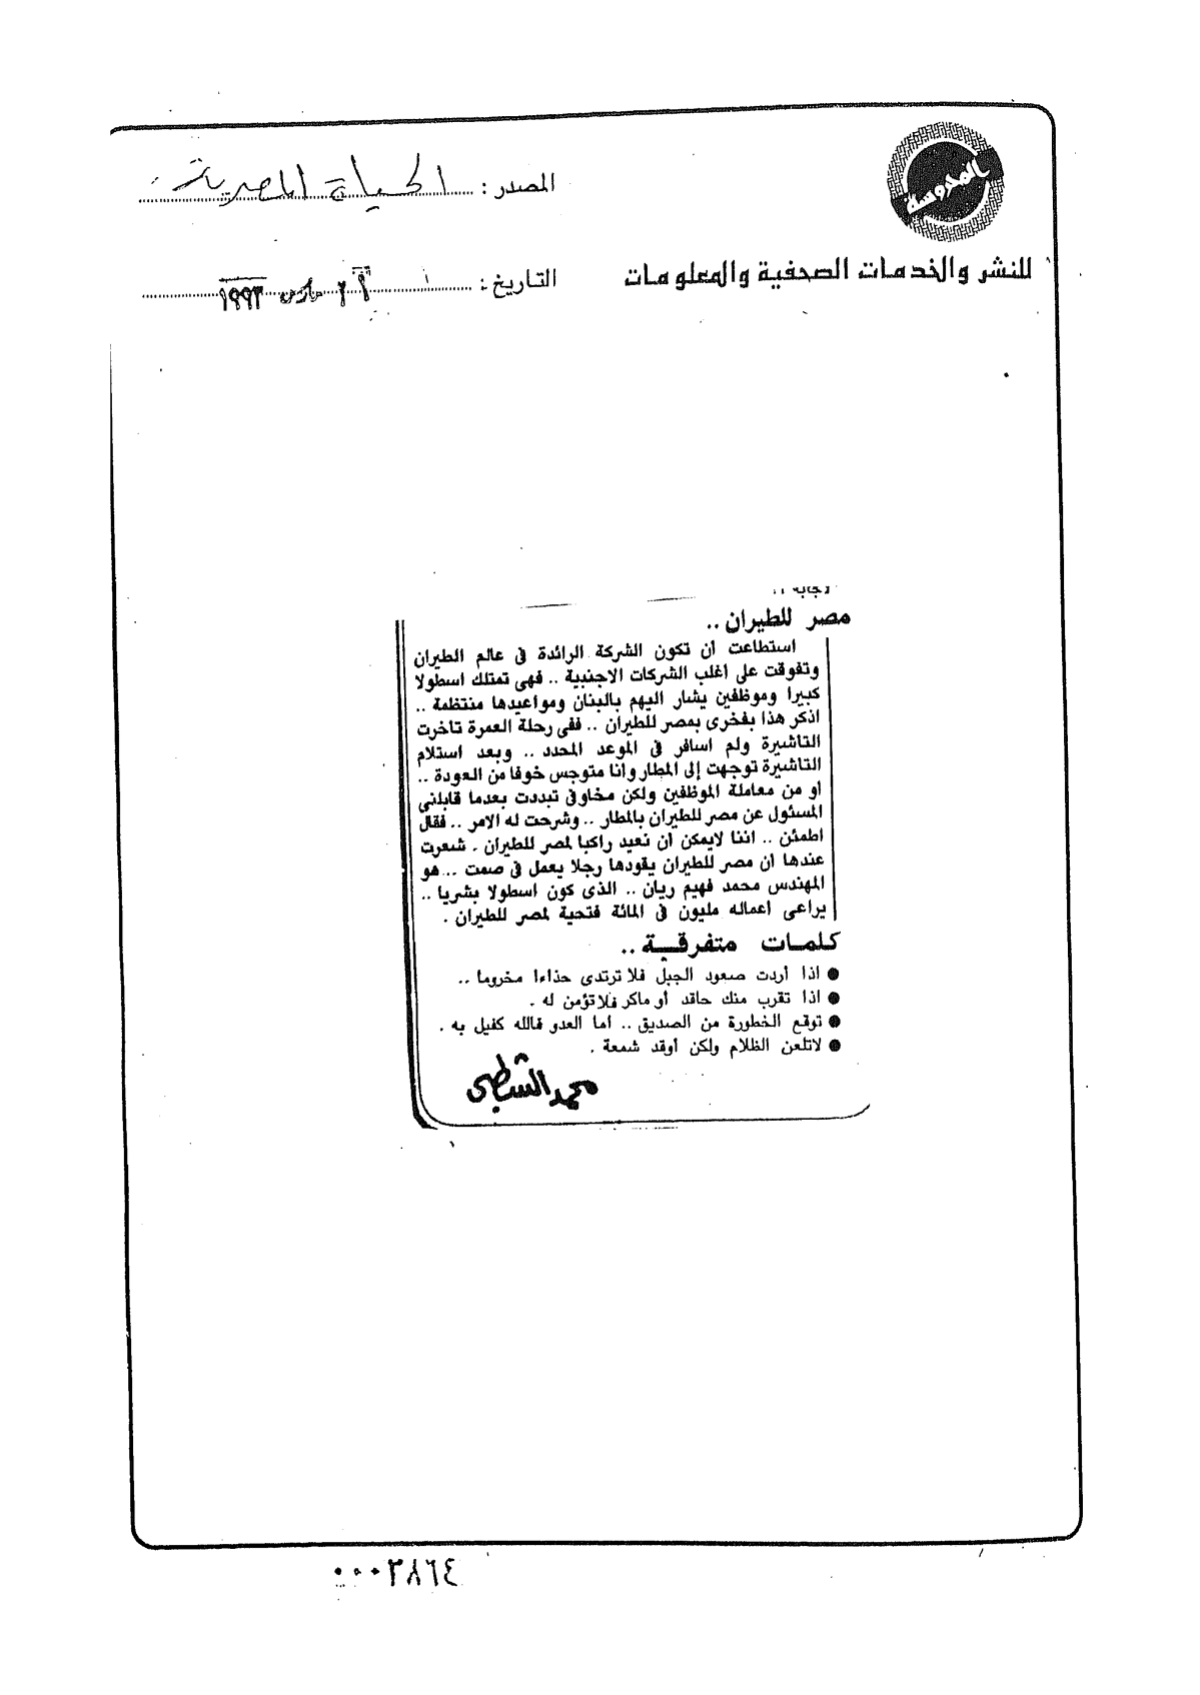 المحروسة
المصدر : الحياة المصرية
للنشر والخدمات الصحفية والمعلومات
التاريخ : مارس ١٩٩٣
مصر للطيران ..
استطاعت ان تكون الشركة الرائدة فى عالم الطيران
وتفوقت على اغلب الشركات الاجنبية .. فهى تمتلك اسطولا
كبيرا وموظفين يشار اليهم بالبنان ومواعيدها منتظمة ..
اذكر هذا بفخرى بمصر للطيران .. ففى رحلة العمرة تاخرت
التاشيرة ولم اسافر فى الموعد المحدد .. وبعد استلام
التاشيرة توجهت إلى المطار وانا متوجس خوفا من العودة ..
او من معاملة الموظفين ولكن مخاوفى تبددت بعدما قابلنى
المسئول عن مصر للطيران بالمطار .. وشرحت له الامر .. فقال
اطمئن .. اننا لايمكن ان نعيد راكبا لمصر للطيران . شعرت
عندها ان مصر للطيران يقودها رجلا يعمل فى صمت ... هو
المهندس محمد فهيم ريان .. الذى كون اسطولا بشريا ..
يراعى اعماله مليون فى المائة فتحية لمصر للطيران .
كلمات متفرقة ..
● اذا أردت صعود الجبل فلا ترتدى حذاءا مخروما ..
● اذا تقرب منك حاقد أو ماكر فلا تؤمن له .
● توقع الخطورة من الصديق .. اما العدو فالله كفيل به .
● لاتلعن الظلام ولكن أوقد شمعة .
محمد الشباطى
٠٠٠٣٨٦٤